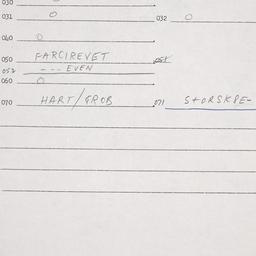 030
031 0 032 0
040 0
050 FARCIREVET 051
052 --- EVEN
060 0
070 HART/GROB 071 STORSKPE-